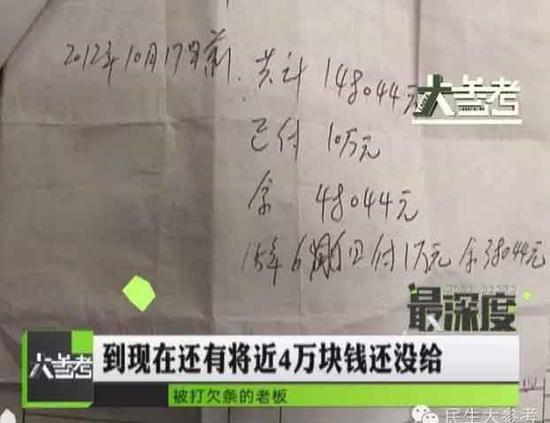 2012年10月17日前. 共计 148044元
大参考
已付 10万元
余 48044元
15年6月 日付1万元余38044元
最深度
大参考
到现在还有将近4万块钱还没给
被打欠条的老板
民生大参考